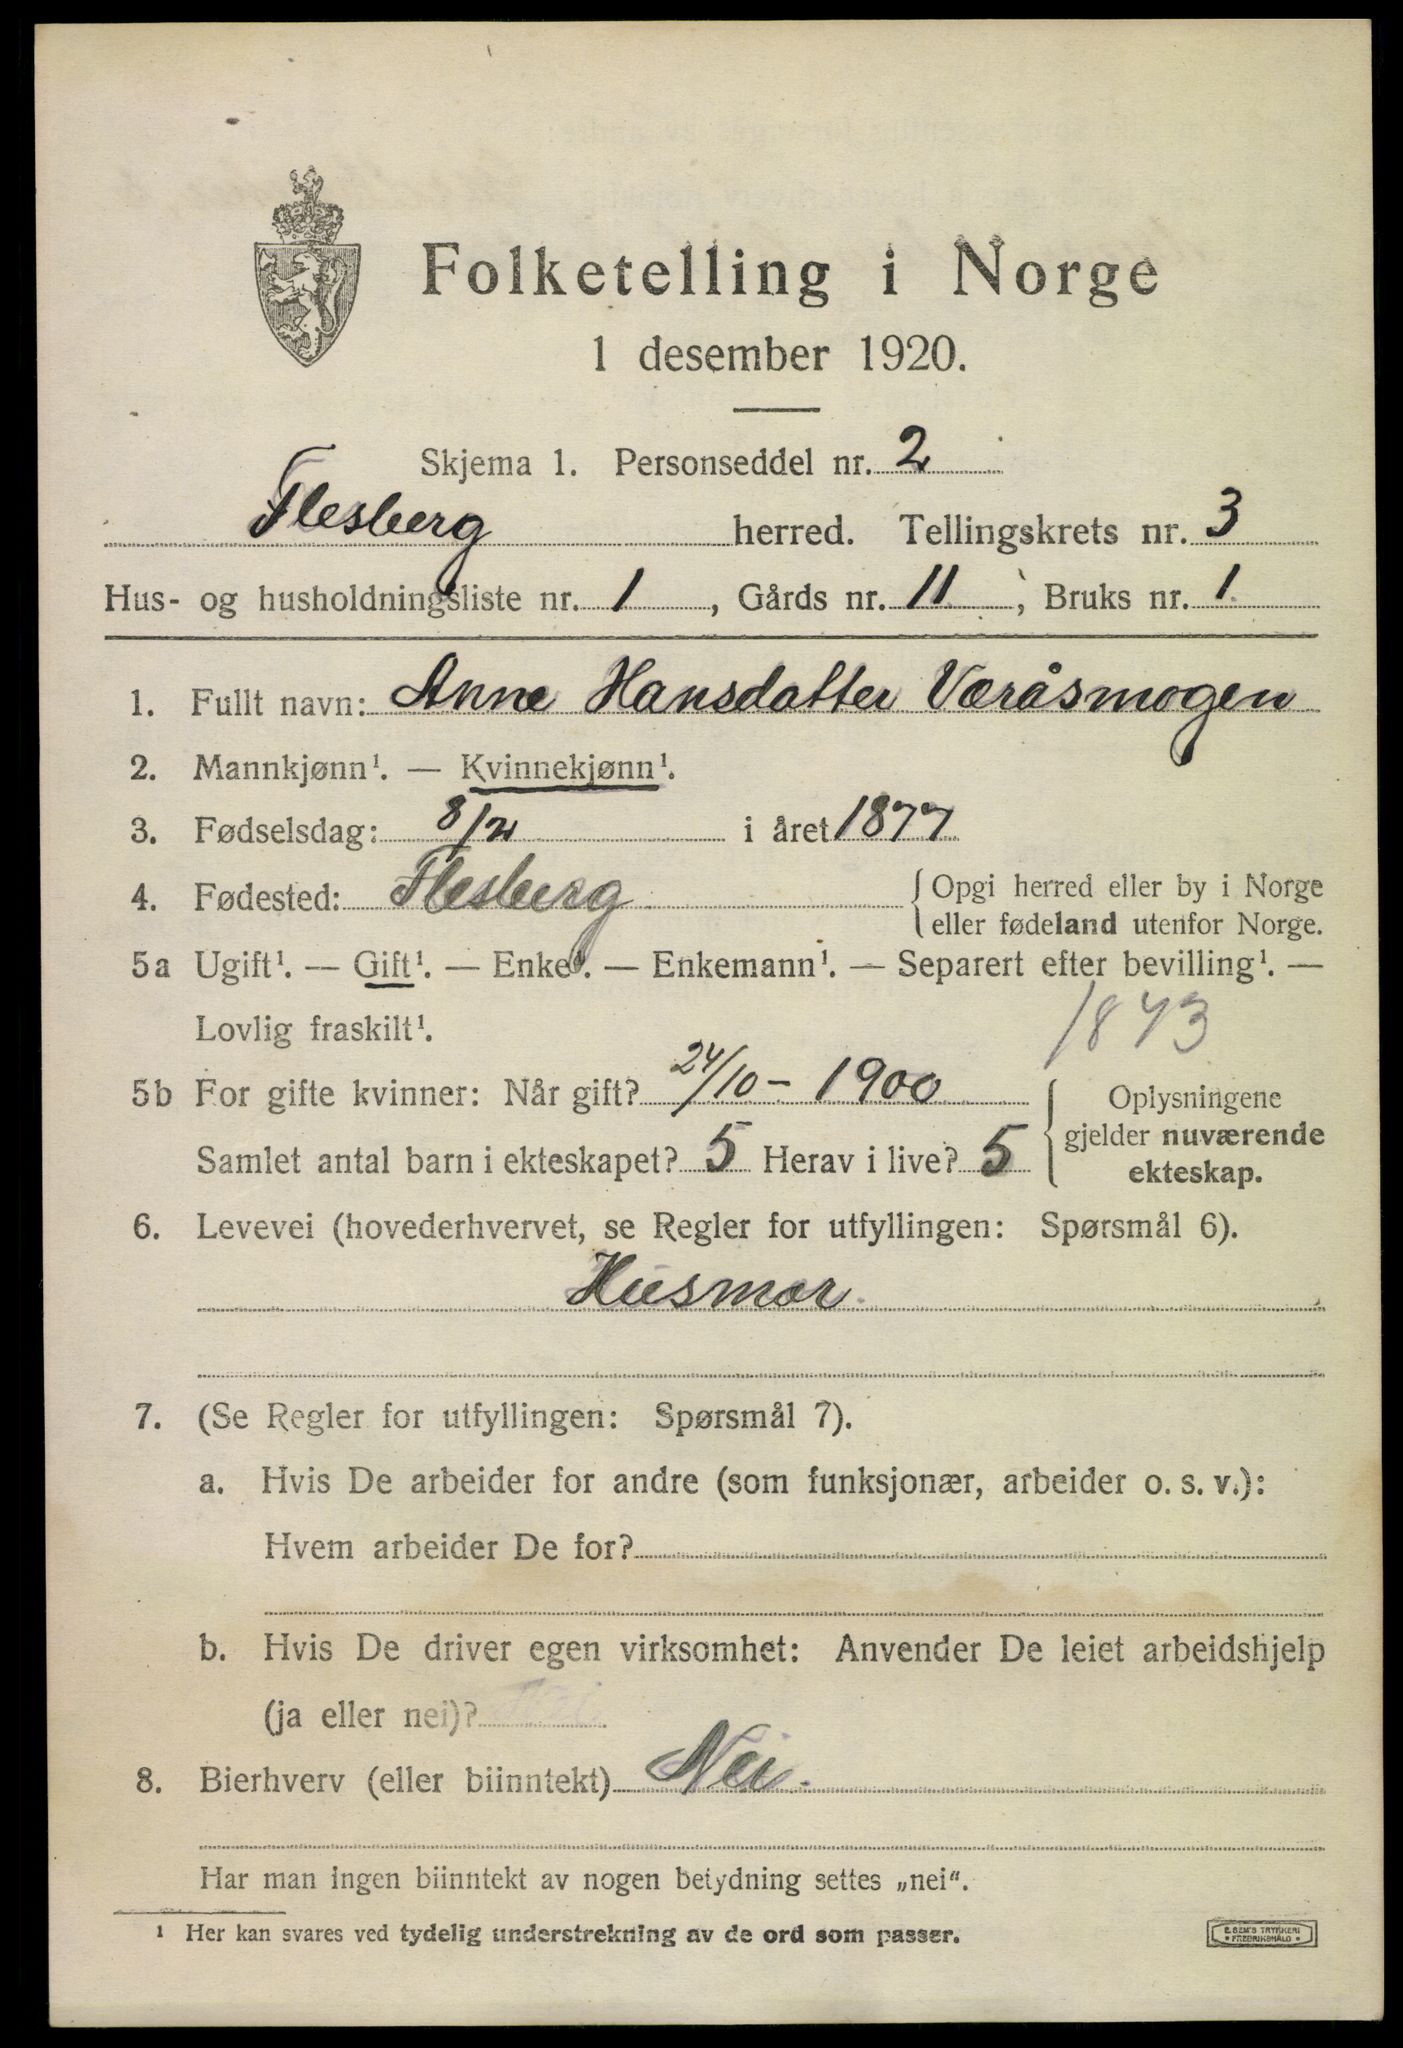 Folketelling i Norge
1 desember 1920.
Skjema 1. Personseddel nr. 2
Flesberg herred. Tellingskrets nr. 3
Hus- og husholdningsliste nr. 1, Gårds nr. 11, Bruks nr. 1
1. Fullt navn: Anne Hansdatter Væråsmogen
2. Mannkjønn¹. — Kvinnekjønn¹.
3. Fødselsdag: 8/2 i året 1877
4. Fødested: Flesberg { Opgi herred eller by i Norge
eller fødeland utenfor Norge.
5a Ugift¹. — Gift¹. — Enke¹. — Enkemann¹. — Separert efter bevilling¹. —
Lovlig fraskilt¹. 1843
5b For gifte kvinner: Når gift? 24/10 - 1900 { Oplysningene
gjelder nuværende
Samlet antal barn i ekteskapet? 5 Herav i live? 5 ekteskap.
6. Levevei (hovederhvervet, se Regler for utfyllingen: Spørsmål 6).
Husmor.
7. (Se Regler for utfyllingen: Spørsmål 7).
a. Hvis De arbeider for andre (som funksjonær, arbeider o. s. v.):
Hvem arbeider De for?
b. Hvis De driver egen virksomhet: Anvender De leiet arbeidshjelp
(ja eller nei)? Nei
8. Bierhverv (eller biinntekt) Nei.
Har man ingen biinntekt av nogen betydning settes „nei“.
¹ Her kan svares ved tydelig understrekning av de ord som passer.
E. SEM'S TRYKKERI
• FREDRIKSHALD •